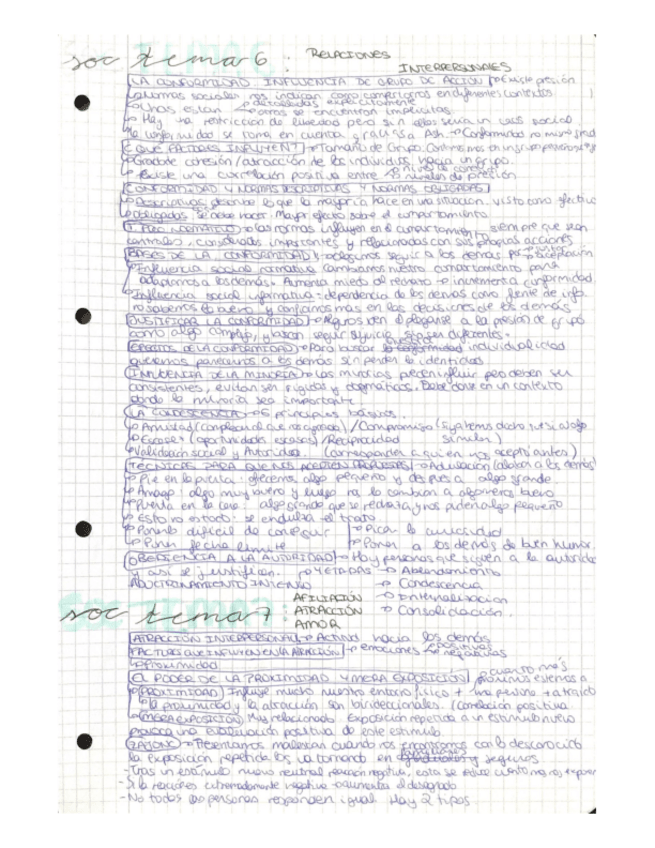 soc tema 6 : RELACIONES
INTERPERSONALES
LA CONFORMIDAD. INFLUENCIA DE GRUPO DE ACCIÓN → Existe presión
Normas sociales nos indican como comportarnos en diferentes contextos
Unas están → detalladas explícitamente
→ otras se encuentran implícitas.
Hay una restricción de libertad pero sin ellas sería un caos social
La conformidad se toma en cuenta gracias a Ash.
¿QUÉ FACTORES INFLUYEN? → Tamaño de Grupo.
Grado de cohesión/atracción de los individuos hacia un grupo.
Existe una correlación positiva entre
niveles de presión
CONFORMIDAD Y NORMAS DESCRIPTIVAS Y NORMAS OBLIGADAS
Descriptivas, describe lo que la mayoría hace en una situación. visto como efectivo
obligadas, se debe hacer. Mayor efecto sobre el comportamiento
→ las normas influyen en el comportamiento siempre que sean
centrales, consideradas importantes y relacionadas con sus propias acciones
BASES DE LA CONFORMIDAD → elegimos seguir a los demás por → aceptación
Influencia social normativa cambiamos nuestro comportamiento para
adaptarnos a los demás. Aumenta miedo al rechazo → incrementa conformidad
Influencia social informativa: dependencia de los demás como fuente de info.
no sabemos y confiamos más en las decisiones de los demás
JUSTIFICAR LA CONFORMIDAD → Algunos ven el plegarse a la presión de grupo
como algo y buscan seguir sin ser diferentes.
EFECTOS DE LA CONFORMIDAD → Para buscar individualidad
queremos parecernos a los demás sin perder la identidad
INFLUENCIA DE LA MINORÍA → las minorías pueden influir pero deben ser
consistentes, evitar ser rígidas y dogmáticas. Debe darse en un contexto
donde la minoría sea importante.
LA CONDESCENCIA → 6 principios básicos.
Amistad / Compromiso
Escasez (oportunidades escasas) / Reciprocidad similar)
Validación social y Autoridad. (corresponder a quien nos aceptó antes)
TÉCNICAS PARA QUE NOS ACEPTEN PROPUESTAS → Adulación (alabar a los demás)
Pie en la puerta: ofrecemos algo pequeño y después algo grande.
Amago: algo muy bueno y luego lo cambian a algo menos bueno
Puerta en la cara: algo grande que se rechaza y nos piden algo pequeño
Esto no es todo: se endulza el trato
Ponerlo difícil de conseguir → Picar la curiosidad
Poner fecha límite → Poner a los demás de buen humor.
OBEDIENCIA A LA AUTORIDAD → Hay personas que siguen a la autoridad
y así se justifican. → 4 ETAPAS → Ablandamiento
ADOCTRINAMIENTO INTENSO → Condescencia
→ Internalización
→ Consolidación.
soc tema 7 : AFILIACIÓN
ATRACCIÓN
AMOR
ATRACCIÓN INTERPERSONAL → Actitud hacia los demás
FACTORES QUE INFLUYEN EN LA ATRACCIÓN → emociones → positivas
→ negativas
Proximidad
EL PODER DE LA PROXIMIDAD Y MERA EXPOSICIÓN → cuanto más
próximos estemos a
PROXIMIDAD Influye mucho nuestro entorno físico una persona + atracción
la proximidad y la atracción son bidireccionales. (Correlación positiva
MERA EXPOSICIÓN Muy relacionado. Exposición repetida a un estímulo nuevo
provoca una evaluación positiva de este estímulo.
ZAJONC → Presentamos malestar cuando nos encontramos con lo desconocido
la exposición repetida los va tornando en familiares y seguros.
- Tras un estímulo nuevo neutral reacción negativa, esta se reduce cuanto más nos exponen
- Si la reacción es extremadamente negativa → aumenta el desagrado
- No todas las personas responden igual Hay 2 tipos